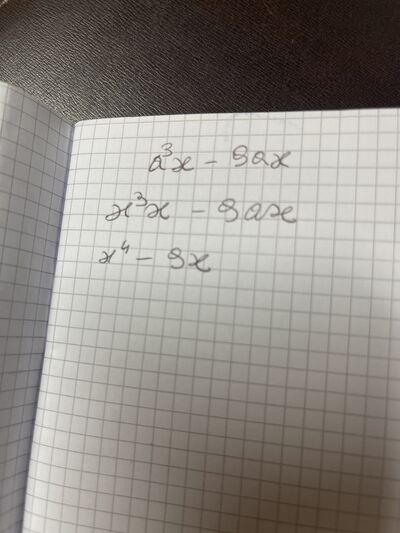 a³x - 9ax
x³x - 9ax
x⁴ - 9x